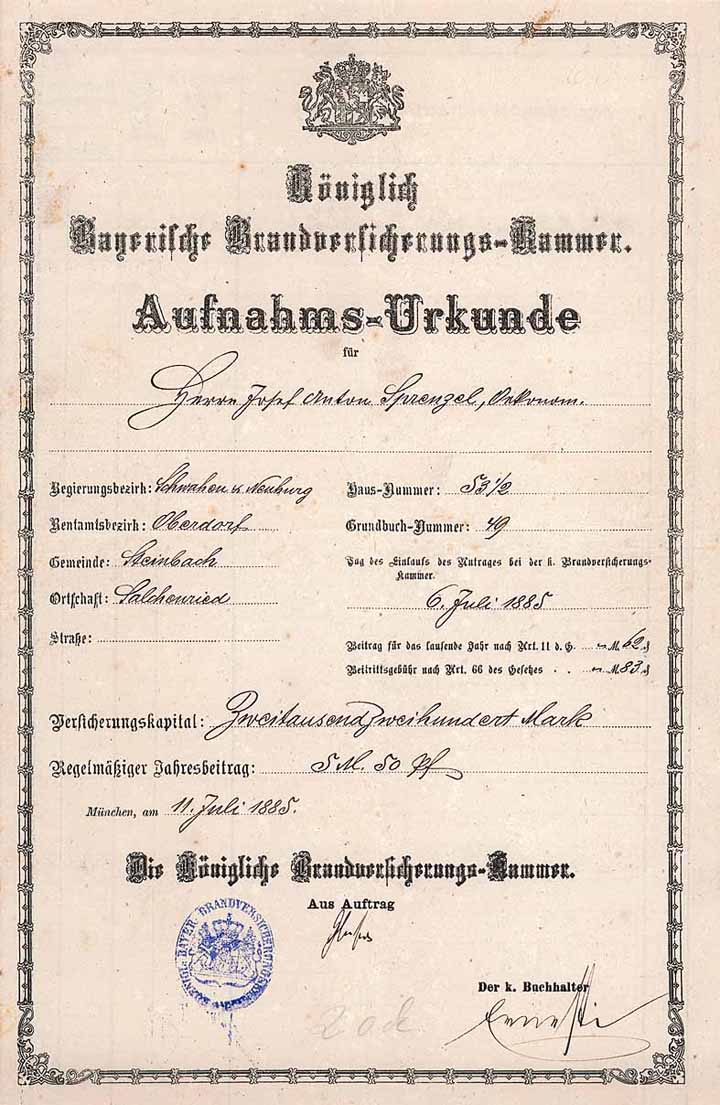 Königlich
Bayerische Brandversicherungs-Kammer.
Aufnahms-Urkunde
für
Herrn Josef Anton Sprenzel, Oekonom.
Regierungsbezirk: Schwaben & Neuburg
Rentamtsbezirk: Oberdorf
Gemeinde: Steinbach
Ortschaft: Salchenried
Straße:
Haus-Nummer: 53 1/2
Grundbuch-Nummer: 49
Tag des Einlaufs des Antrages bei der k. Brandversicherungs-
Kammer.
6. Juli 1885
Beitrag für das laufende Jahr nach Art. 11 d. G. M. 62 ₰
Beitrittsgebühr nach Art. 66 des Gesetzes . . M. 83 ₰
Versicherungskapital: Zweitausend Zweihundert Mark
Regelmäßiger Jahresbeitrag: 5 M. 50 Pf
München, am 11. Juli 1885.
Die Königliche Brandversicherungs-Kammer.
Aus Auftrag
BAYER. BRANDVERSICHERUNGS
Der k. Buchhalter
Ernesti